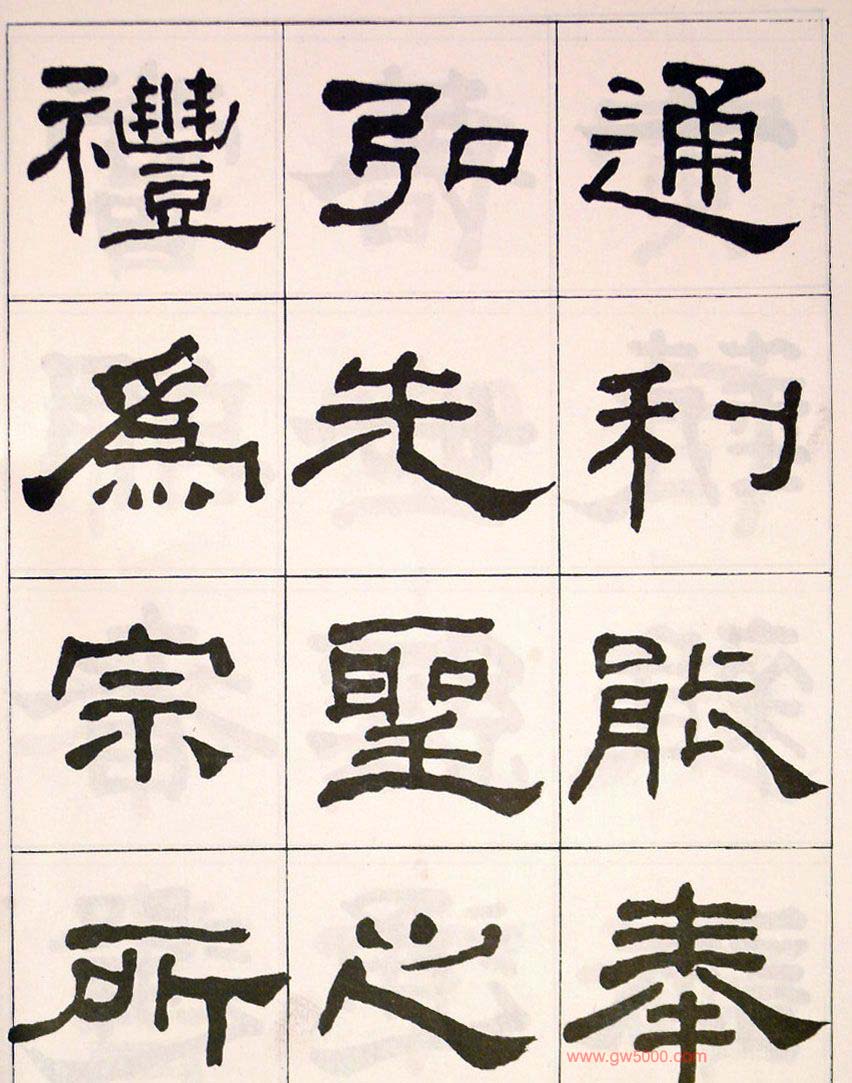 通利能奉
弘先聖之
禮為宗所
www.gw5000.com